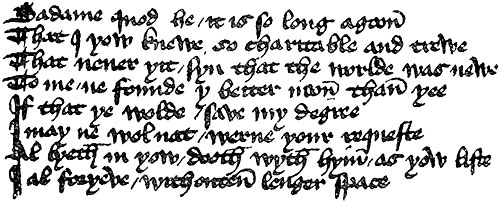 Madame quod he / it is so long agoon
That I yow knewe. so charitable and trewe
That neuer yit / syn that the worlde was newe
To me / ne founde y better noon than yee
If that ye wolde / save my degree
I may ne wol nat / werne your requeste
Al lyeth in yow / dooth wyth hym / as yow liste
I al foryeve / withouten lenger space